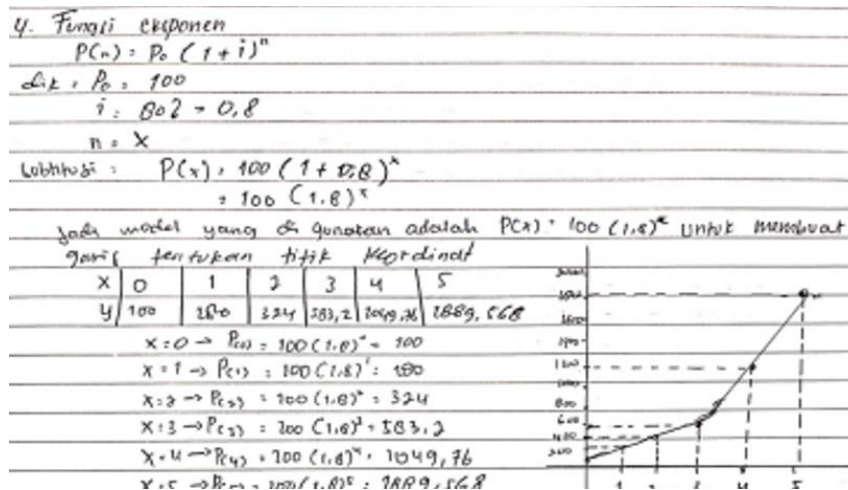 4. Fungsi eksponen
P(n) = P₀ (1 + i)ⁿ
dik : P₀ = 100
i = 80% = 0,8
n = x
Subtitusi : P(x) = 100 (1 + 0,8)ˣ
= 100 (1,8)ˣ
Jadi model yang di gunakan adalah P(x) = 100 (1,8)ˣ untuk membuat
garis tentukan titik koordinat
x 0 1 2 3 4 5
y 100 180 324 583,2 1049,76 1889,568
x = 0 → P(0) = 100 (1,8)⁰ = 100
x = 1 → P(1) = 100 (1,8)¹ = 180
x = 2 → P(2) = 100 (1,8)² = 324
x = 3 → P(3) = 100 (1,8)³ = 583,2
x = 4 → P(4) = 100 (1,8)⁴ = 1049,76
x = 5 → P(5) = 100 (1,8)⁵ = 1889,568
1800
1600
1400
1200
1000
800
600
400
200
1 2 3 4 5